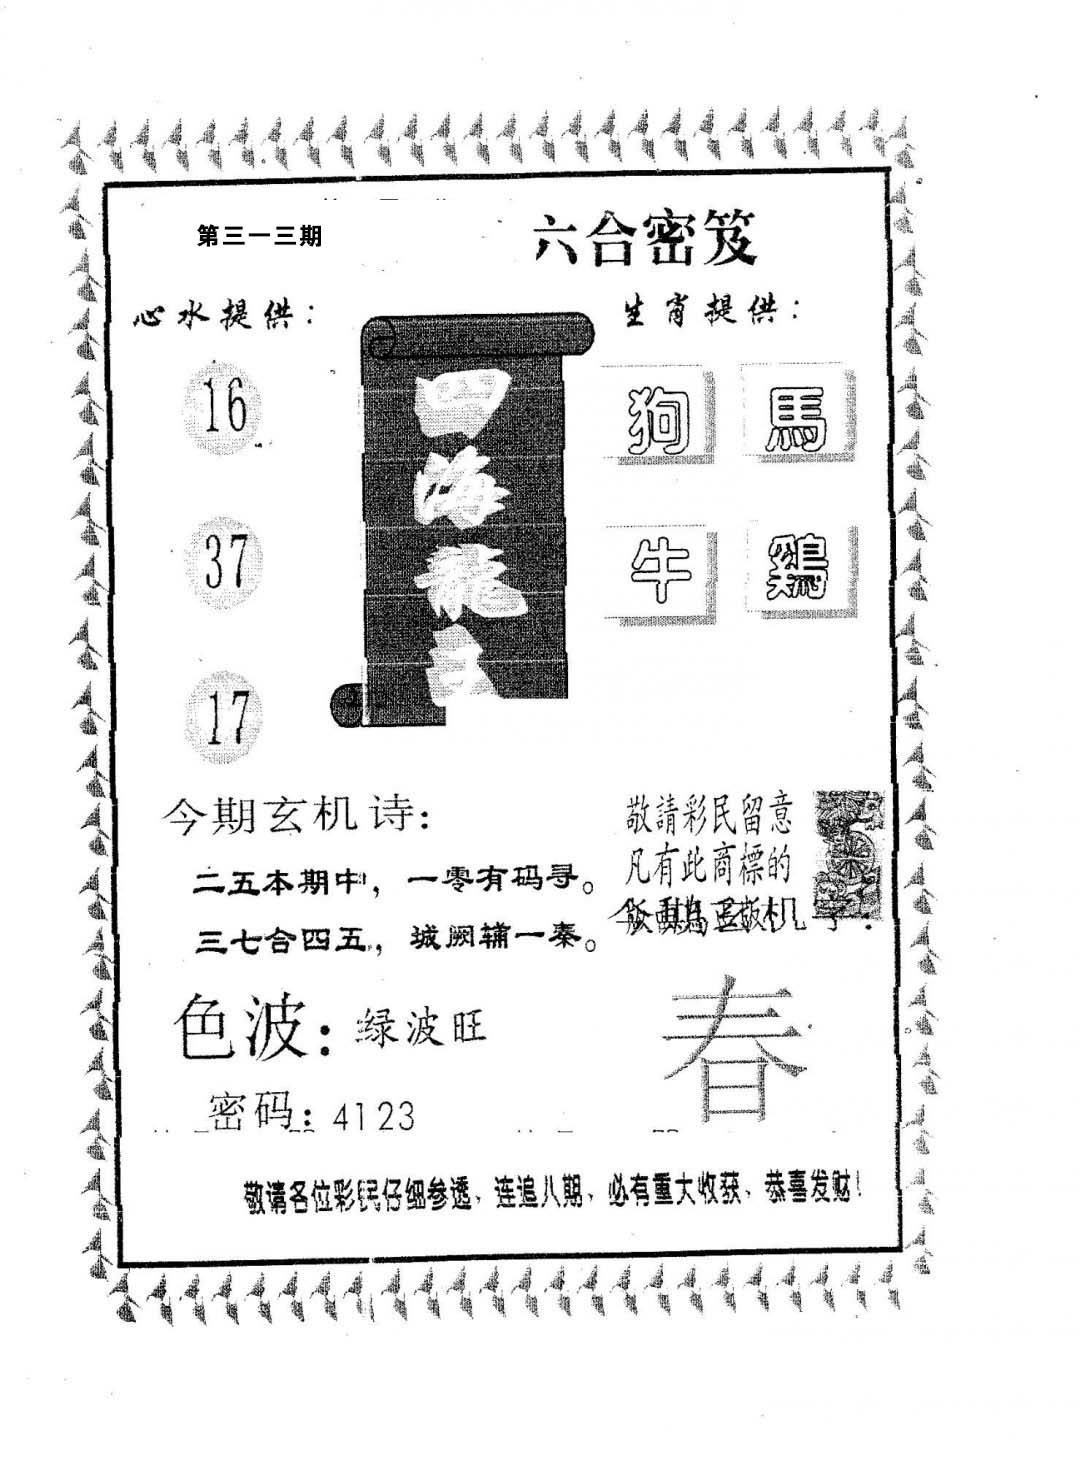 第三一三期
六合密笈
心水提供：
生肖提供：
16
37
17
四海龍王
狗 馬
牛 鷄
今期玄机诗：
二五本期中，一零有码寻。
三七合四五，城阙辅一秦。
敬請彩民留意
凡有此商標的
色波：绿波旺
春
密码：4123
敬请各位彩民仔细参透、连追八期、必有重大收获、恭喜发财！